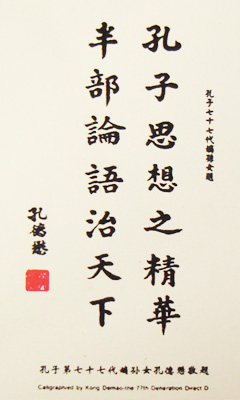 孔子七十七代嫡孫女題
孔子思想之精華
半部論語治天下
孔德懋
孔子第七十七代嫡孙女孔德懋敬題
Calligraphied by Kong Demao-the 77th Generation Direct D